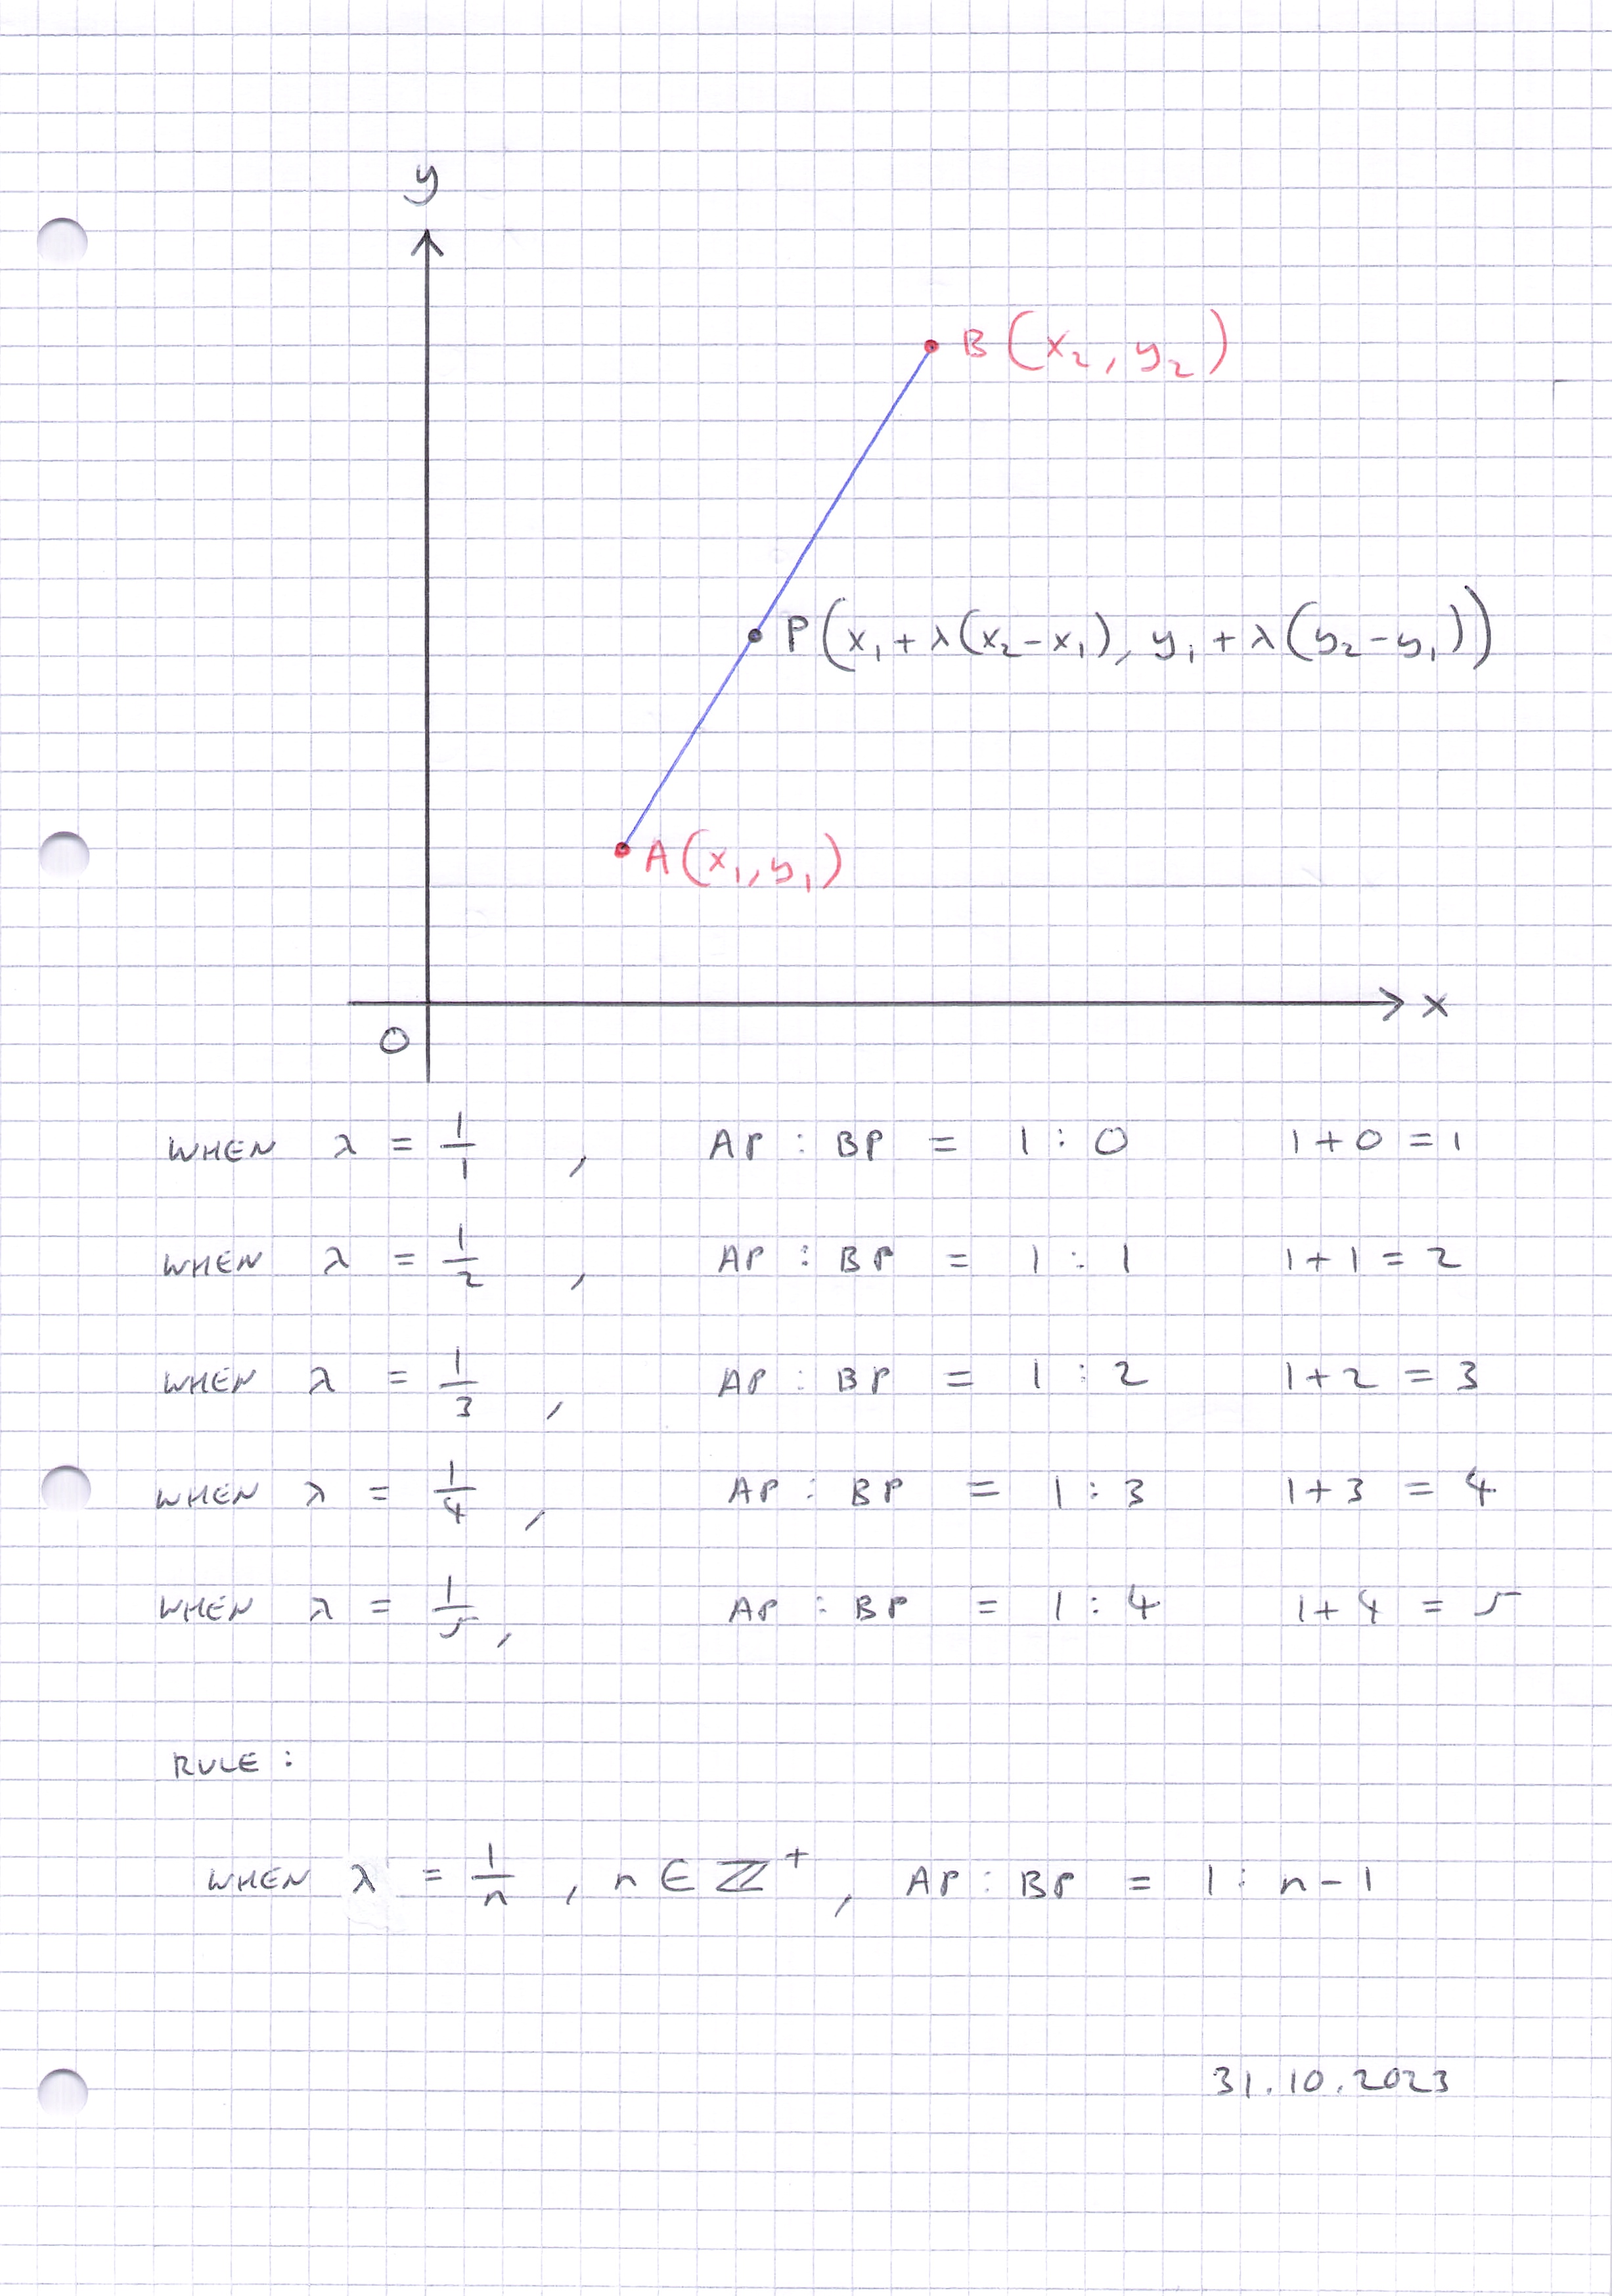 y
B (x₂, y₂)
P(x₁ + λ(x₂ - x₁), y₁ + λ(y₂ - y₁))
A(x₁, y₁)
x
O
WHEN λ = 1/1 , AP : BP = 1 : 0 1 + 0 = 1
WHEN λ = 1/2 , AP : BP = 1 : 1 1 + 1 = 2
WHEN λ = 1/3 , AP : BP = 1 : 2 1 + 2 = 3
WHEN λ = 1/4 , AP : BP = 1 : 3 1 + 3 = 4
WHEN λ = 1/5 , AP : BP = 1 : 4 1 + 4 = 5
RULE :
WHEN λ = 1/n , n ∈ ℤ⁺ , AP : BP = 1 : n - 1
31.10.2023